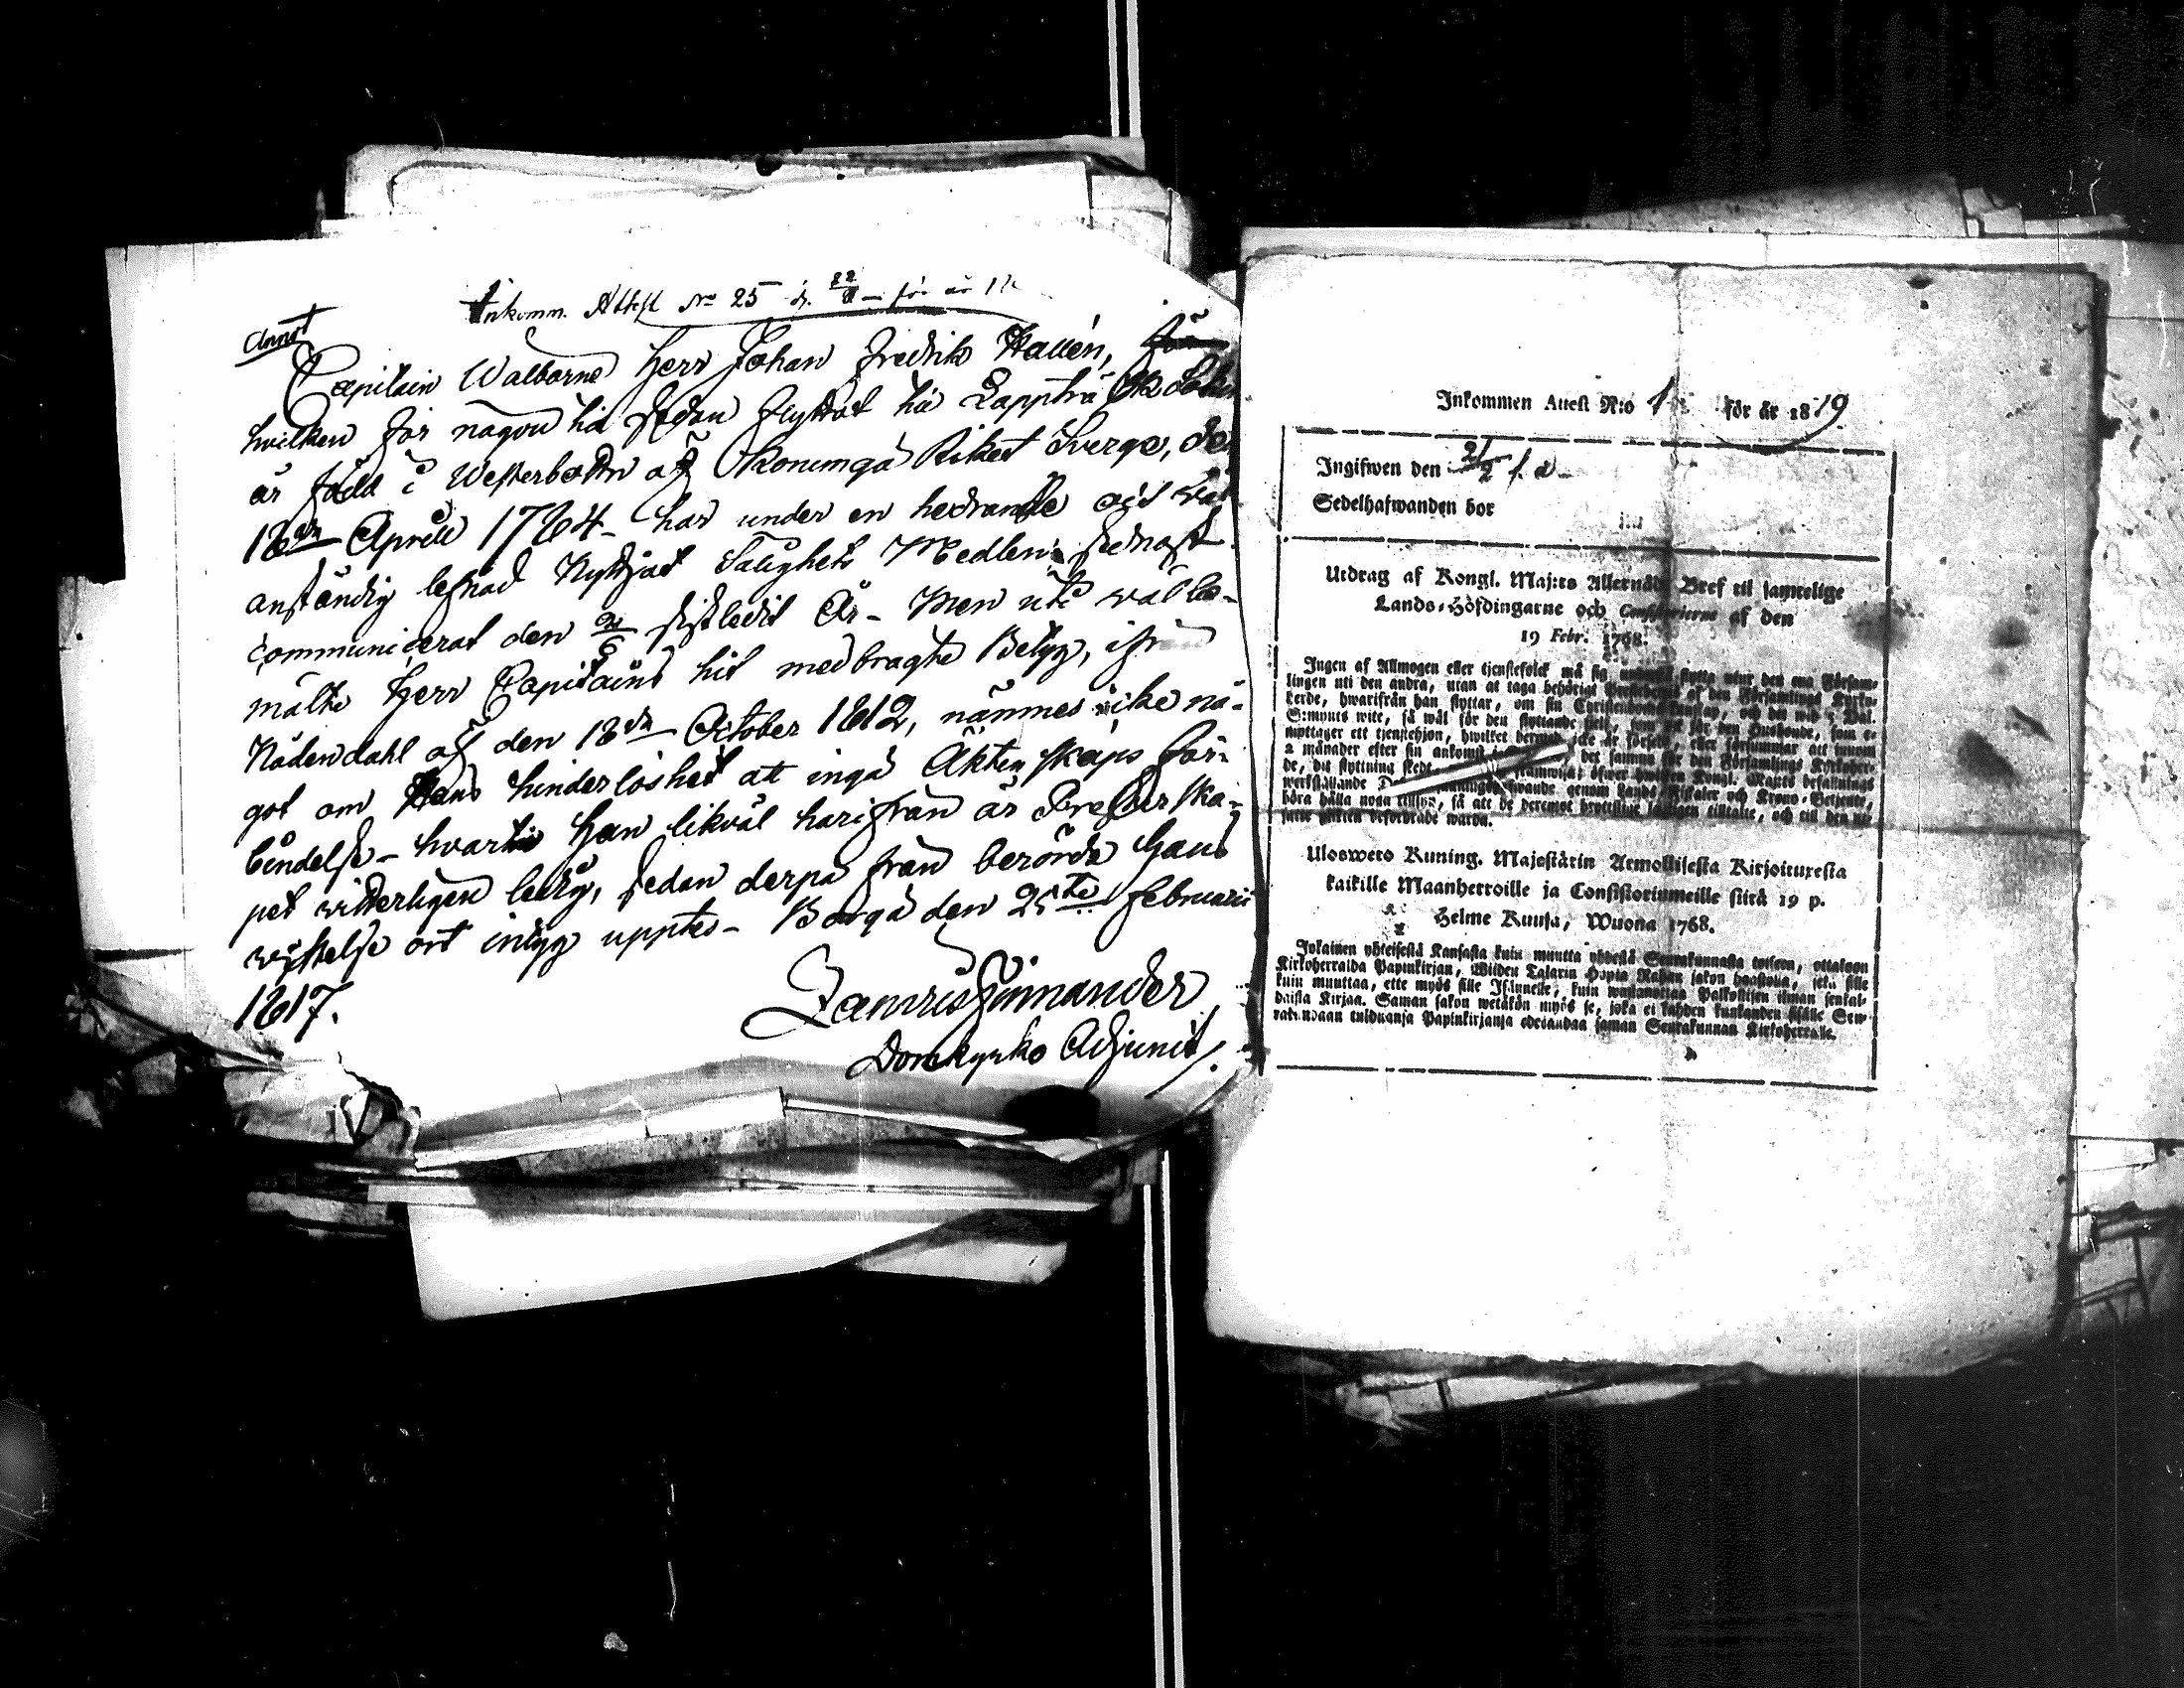 Inkomm. Attest No 25 d. 22/11 - för år 18
Annot
Capitain Walborne Herr Johan Fredrik Hallén, för
hvilken för någon tid sedan flyttat till Lappträsk Sokn
är född i Westerbotten af Konungariket Sverge, den
18de Aprill 1764 - har under en hedrande och wäl
anständig lefnad Nyttjat Salighets Medlen sednast
communicerat den 2/6 sistledit År - Men uti wälbe-
mälte Herr Capitains hit medbragte Betyg, ifrån
Nådendahl af den 18de October 1812, nämnes icke nå-
got om Hans hinderlöshet att ingå Äktenskaps för-
bindelse - hvartill Han likväl härifrån är Prefterska-
pet witterligen ledig, sedan derpå från berörde Hans
wistelse ort intyg upptes - Borgå den 25te Februarii
1817.
Zimander
Domkyrko Adjunct.
Inkommen Attest N:o 1 för år 1819.
Ingifwen den 21/2 f. d.
Sedelhafwanden bor
Utdrag af Kongl. Maj:ts Allernåd. Bref til samtelige
Lands-Höfdingarne och Consistorierne af den
19 Febr. 1768.
Ingen af Allmogen eller tjenstefolck må sig flytta utur den ena Försam-
lingen uti den andra, utan at taga behörigt Prestebetyg af den Församlings Kyrko-
herde, hwarifrån han flyttar, om sin Christendoms kunskap, och det wid 5 Dal.
S:mynts wite, så wäl för den flyttande sielf, som för den Husbonde, som e-
mottager ett tjenstehjon, hwilket dermed icke är försedt, eller försummar att innom
2 månader efter sin ankomst det samma för den Församlings Kyrkoher-
de, dit flyttning skedt, framwisa; öfwer hwilken Kongl. Maj:ts befallnings
werkställande genom Lands-Fiskaler och Krono-Betjente,
böra hålla noga tillsyn, så att de deremot brytteliga lagligen tilltalte, och till den ut-
satte plikten befordrade warda.
Uloswето Kuning. Majestätin Armollisesta Kirjoituxesta
kaikille Maanherroille ja Consistoriumeille siitä 19 p.
Helme Kuusa, Wuona 1768.
Jokainen yhteisestä Kansasta kuin muutta yhdestä Seurakunnasta toiseen, ottakoon
Kirkoherralda Papinkirjan, Wiiden Talarin Hopia Rahan sakon haastolla, sekä sille
kuin muuttaa, ette myös sille Isännelle, kuin wastanottaa Palkollisen ilman senkal-
daista Kirjaa. Saman sakon wetäkön myös se, joka ei kahden kuukauden sisälle Seu-
rakundaan tulduansa Papinkirjansa edesandaa saman Seurakunnan Kirkoherralle.